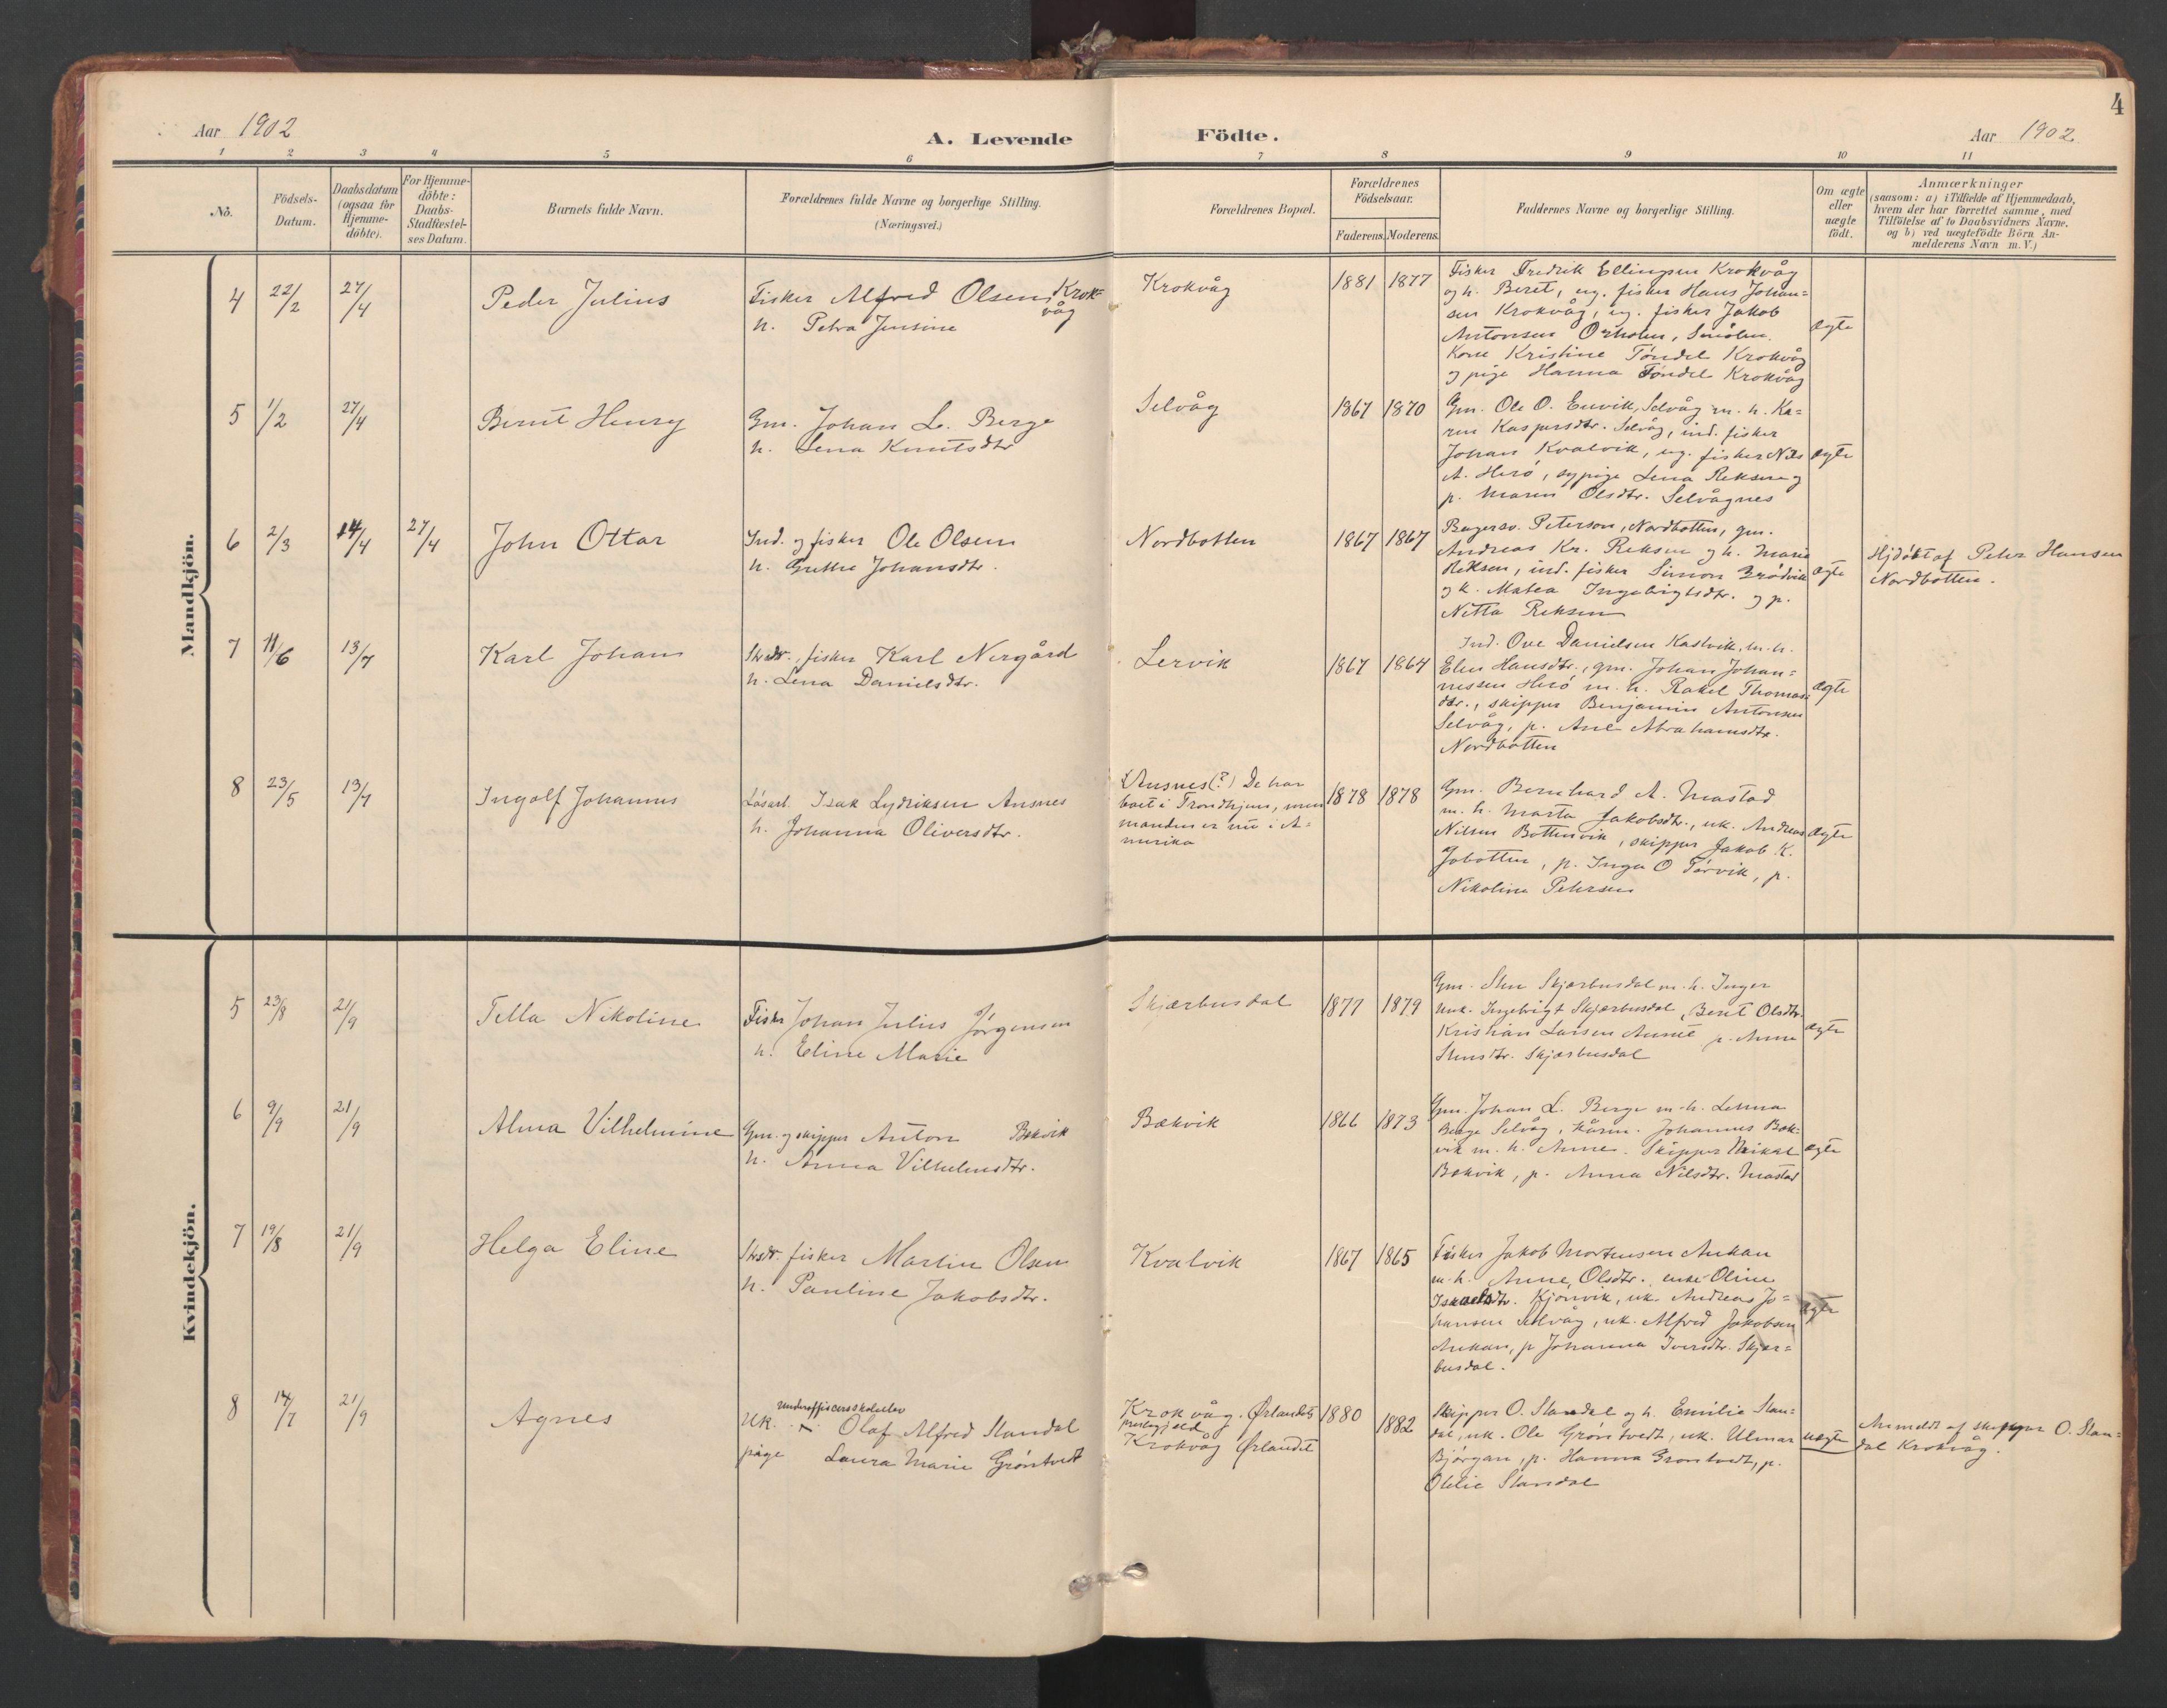 4
Aar 1902
A. Levende Födte.
Aar 1902
1 2 3 4 5 6 7 8 9 10 11
No.
Födsels-
Datum.
Daabsdatum
(ogsaa for
Hjemme-
döbte).
For Hjemme-
döbte:
Daabs-
Stadfæstel-
ses Datum.
Barnets fulde Navn.
Forældrenes fulde Navne og borgerlige Stilling.
(Næringsvei.)
Forældrenes Bopæl.
Forældrenes
Födselsaar.
Faderens. Moderens.
Faddernes Navne og borgerlige Stilling.
Om ægte
eller
uægte
födt.
Anmærkninger
(saasom: a) i Tilfælde af Hjemmedaab,
hvem der har forrettet samme, med
Tilföielse af to Daabsvidners Navne,
og b) ved uægtefödte Börn An-
melderens Navn m. V.)
Mandkjön.
4
22/2
27/4
Peder Julius
Fisker Alfred Olsen, Krok-
våg
h. Petra Jensine
Krokvåg
1881 1877
Fisker Fredrik Ellingsen Krokvåg
og h. Beret, ug. fisker Hans Johan-
sen Krokvåg, ug. fisker Jakob
Antonsen Smölen.
Kone Kristine Töndel Krokvåg
og pige Hanna Töndel Krokvåg
ægte
5
1/2
27/4
Bernt Henry
Gm. Johan L. Berge
h. Lena Knutsdtr
Selvåg
1867 1870
Gm. Ole O. Selvåg m. h. Ka-
ren Kaspersdtr. Selvåg, ind. fisker
Johan Kvalvik, ug. fisker Nils
A. Herö, sypige Lena Reksen og
p. Maren Olsdtr. Selvågnes
ægte
6
2/3
14/4
27/4
John Ottar
Ind. og fisker Ole Olsen
h. Grethe Johansdtr.
Nordbotten
1867 1867
Bagersv. Peterson, Nordbotten, gm.
Andreas Kr. Reksen og h. Marie
Reksen, ind. fisker Simon
og k. Matea Ingebrigtsdtr. og p.
Netta Reksen
ægte
Hjdöbt af Peter Hansen
Nordbotten.
7
11/6
13/7
Karl Johan
Strsdr., fisker Karl Nergård
h. Lena Danielsdtr.
Lervik
1867 1864
Ind. Ove Danielsen Kastvik, m. h.
Elen Hansdtr., gm. Johan Johan-
nessen Herö m. h. Rakel Thomas-
dtr., skipper Benjamin Antonsen
Selvåg, p. Ane Abrahamsdtr.
Nordbotten
ægte
8
23/5
13/7
Ingolf Johannes
Lösarb. Isak Lydriksen Ansnes
h. Johanna Oliversdtr.
Ansnes(?) De har
boet i Trondhjem, men
manden er nu i A-
merika
1878 1878
Gm. Bernhard A. Mastad
m. h. Marta Jakobsdtr., uk. Andreas
Nilsen Bottenvik, skipper Jakob K.
Jobotten, p. Inga O Törvik, p.
Nikoline Petersen
ægte
Kvindekjön.
5
23/8
21/9
Tella Nikoline
Fisker Johan Julius Jörgensen
h. Eline Marie
Skjærbusdal
1877 1879
Gm. Sten Skjærbusdal m. h. Inger
Ingebrigt Skjærbusdal, Berit Olsdtr.
Kristian Larsen Aune p. Anna
Stensdtr. Skjærbusdal
ægte
6
9/9
21/9
Alma Vilhelmine
Gm. og skipper Anton Bekvik
h. Anna Vilhelmsdtr.
Bækvik
1866 1873
Gm. Johan L. Berge m. h. Lehna
Berge Selvåg, Johannes Bæk-
vik m. h. Anne. Skipper Mikal
Bækvik, p. Anna Nilsdtr. Mastad
ægte
7
19/8
21/9
Helga Eline
Strsdr. fisker Martin Olsen
h. Pauline Jakobsdtr.
Kvalvik
1867 1865
Fisker Jakob Mortensen Aukan
m. h. Anne Olsdtr., enke Oline
Isaksdtr. Kjönvik, uk. Andreas Jo-
hansen Selvåg, uk. Alfred Jakobsen
Aukan, p Johanna Iversdtr. Skjær-
busdal.
ægte
8
14/7
21/9
Agnes
underofficersskoleelev
Uk. Olaf Alfred Standal
pige Laura Marie Gröntvedt
Krokvåg. Ørlandets
prestegjeld
Krokvåg Ørlandet
1880 1882
Skipper O. Standal og h. Emilie Stan-
dal, uk. Ole Gröntvedt, uk. Ulmar
Björgan, p. Hanna Gröntvedt, p.
Otelie Standal
uægte
Anmeldt af skipper O. Stan-
dal Krokvåg.